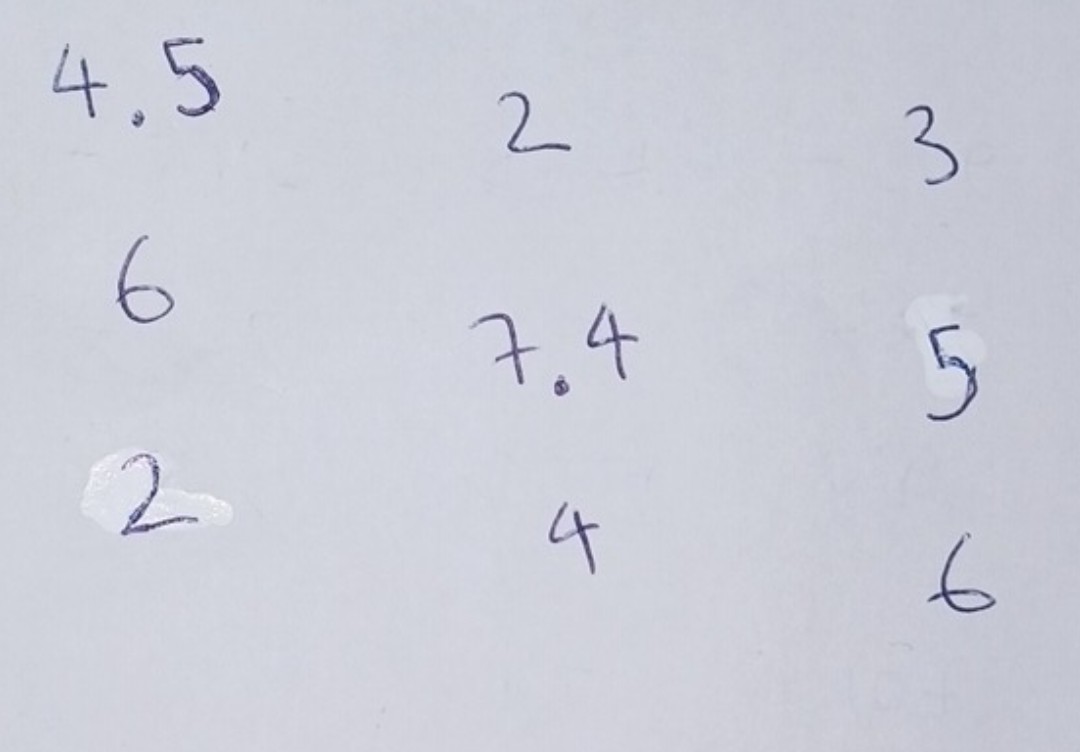 4.5 2 3
6 7.4 5
2 4 6